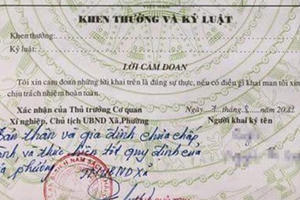 KHEN THƯỞNG VÀ KỶ LUẬT
Khen thưởng:
Kỷ luật:
LỜI CAM ĐOAN
Tôi xin cam đoan những lời khai trên là đúng sự thực, nếu có điều gì khai man tôi xin
chịu trách nhiệm hoàn toàn.
Xác nhận của Thủ trưởng Cơ quan
Xí nghiệp, Chủ tịch UBND Xã, Phường
Người khai ký tên
Bản thân và gia đình chưa chấp
hành và thực hiện tốt quy định của
địa phương
TM UBND Xã